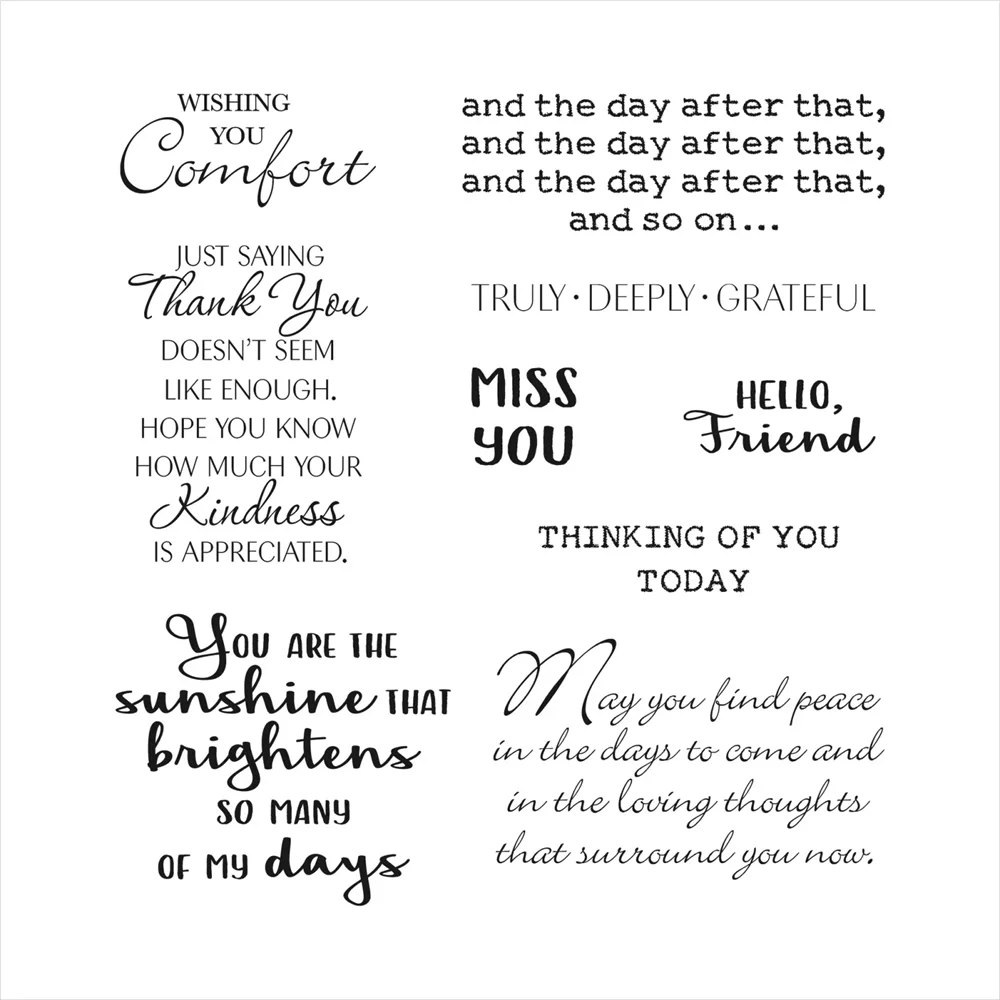 WISHING
YOU
Comfort
JUST SAYING
Thank You
DOESN'T SEEM
LIKE ENOUGH.
HOPE YOU KNOW
HOW MUCH YOUR
Kindness
IS APPRECIATED.
YOU ARE THE
sunshine THAT
brightens
SO MANY
OF MY days
and the day after that,
and the day after that,
and the day after that,
and so on...
TRULY · DEEPLY · GRATEFUL
MISS
YOU
HELLO,
Friend
THINKING OF YOU
TODAY
May you find peace
in the days to come and
in the loving thoughts
that surround you now.